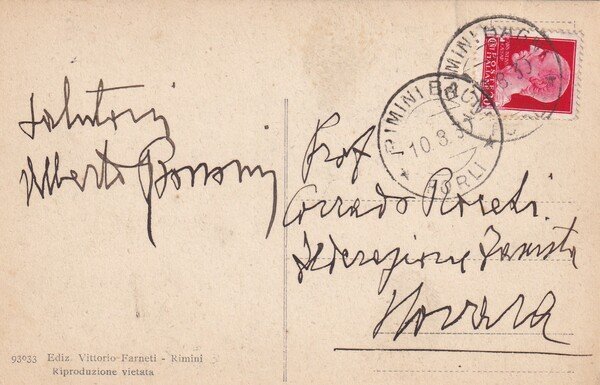 Saluti
Alberto
RIMINI BAGNI
RIMINI BAGNI
10.8.3
FORLI
Prof
Corrado
Federazione Fascista
Novara
93033 Ediz. Vittorio Farneti - Rimini
Riproduzione vietata